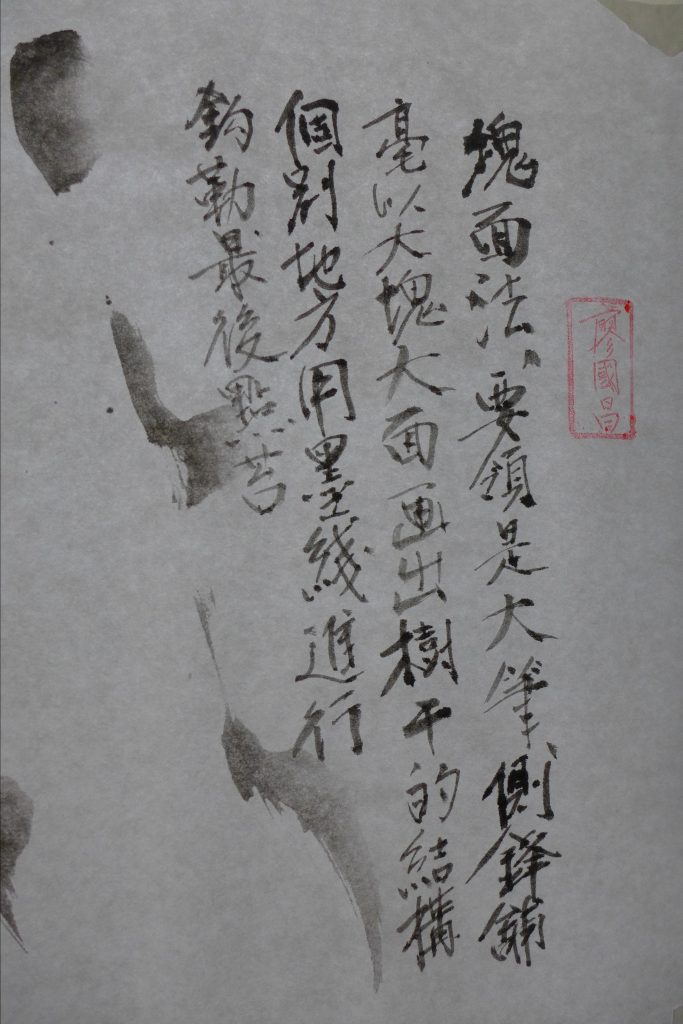 塊面法、要領是大筆、側鋒鋪
毫以大塊大面画出樹干的結構
個別地方用墨綫進行
鈎勒最後點苔
廖國昌